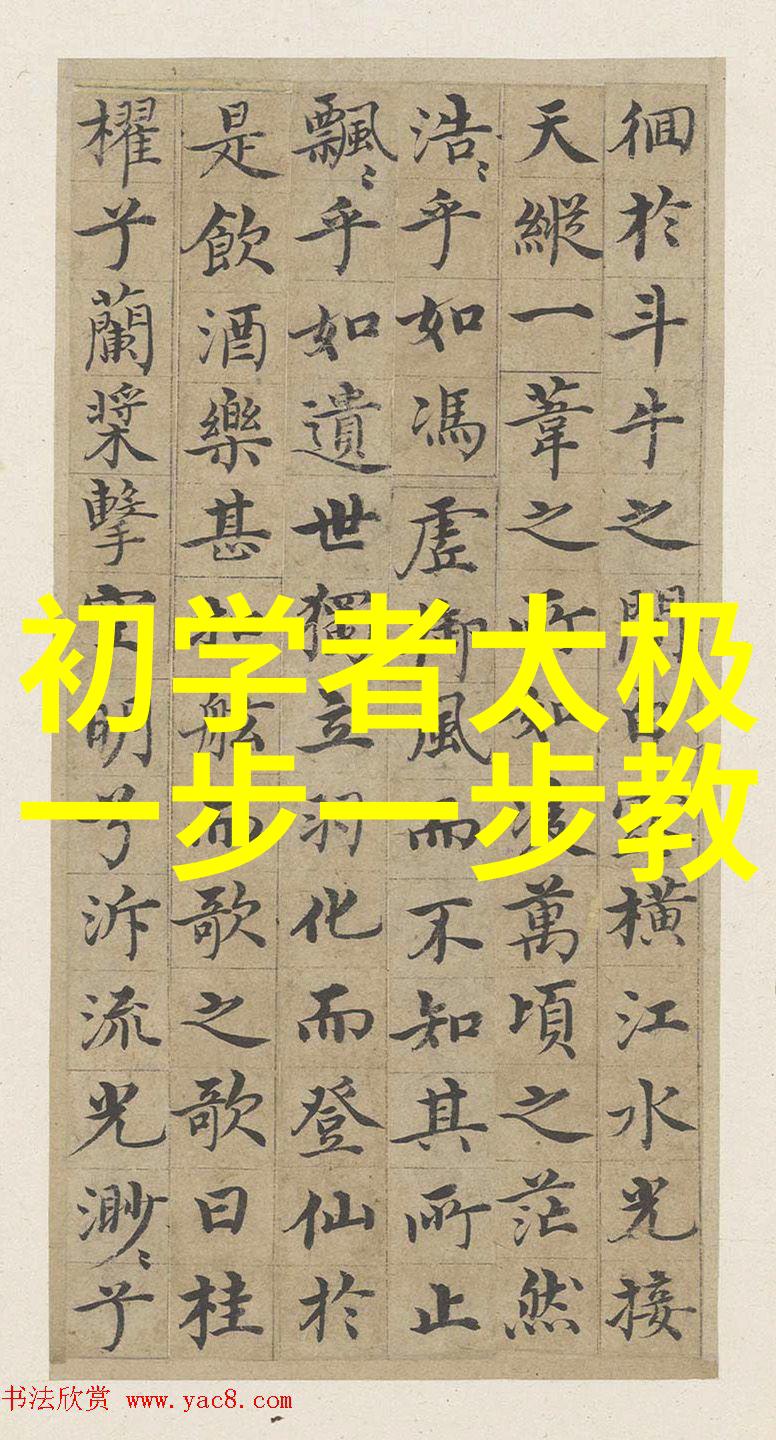 徊於斗牛之間白橫江水光接
天縱一葦之所如凌萬頃之茫然
浩〻乎如馮虛御風而不知其所止
飄〻乎如遺世獨立羽化而登仙於
是飲酒樂甚扣舷而歌之歌曰桂
櫂兮蘭槳擊空明兮泝流光渺〻兮
初学者太极
一步一步教
书法欣赏 www.yac8.com